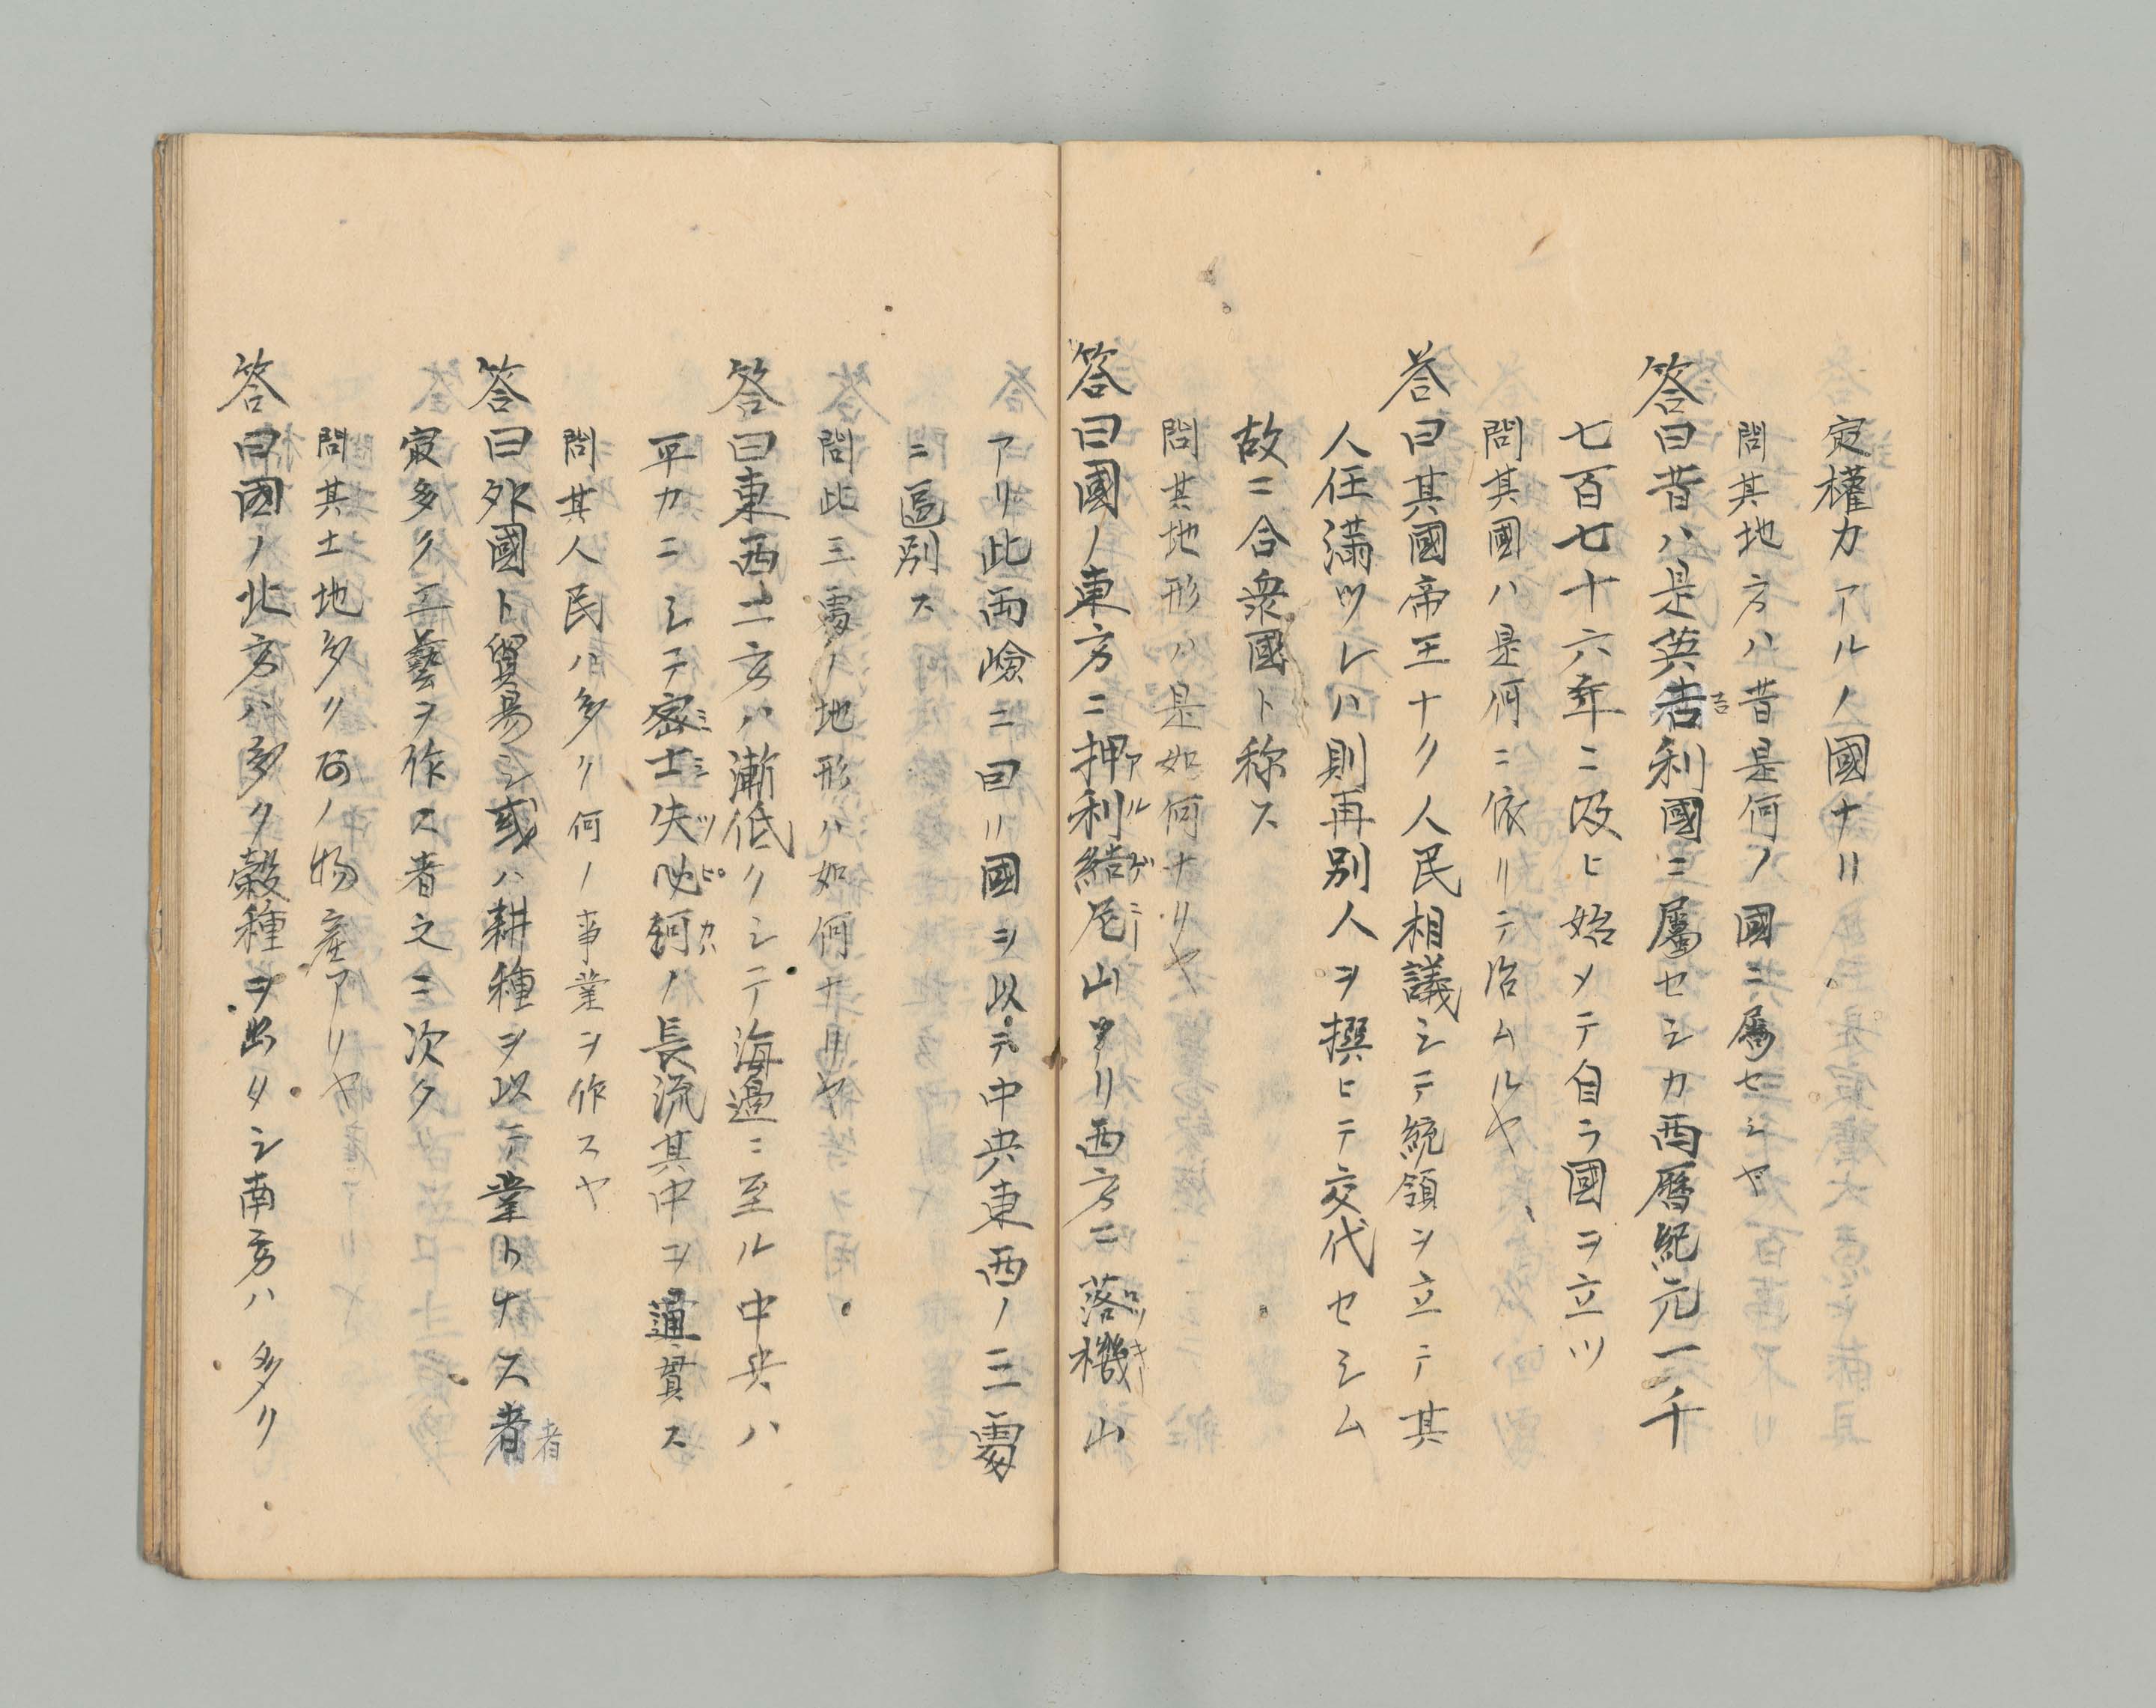 㝡權力アルノ國ナリ
問其地方ハ昔是何ノ國ニ屬セシヤ
答曰昔ハ是英吉利國ニ屬セシカ西曆紀元一千
七百七十六年ニ及ヒ始メテ自ラ國ヲ立ツ
問其國ハ是何ニ依リテ治ムルヤ
答曰其國帝王ナク人民相議シテ統領ヲ立テ其
人任滿ツレハ則再別人ヲ撰ヒテ交代セシム
故ニ合衆國ト称ス
問其地形ハ是如何ナリヤ
答曰國ノ東方ニ押利結尼山アリ西方ニ落機山
アリ此両嶮ニ因リ國ヲ以テ中央東西ノ三處
ニ區別ス
問此三處ノ地形ハ如何ナリヤ
答曰東西二方ハ漸低クシテ海邊ニ至ル中央ハ
平カニシテ密士失𠯗河ノ長流其中ヲ通貫ス
問其人民ハ多ク何ノ事業ヲ作スヤ
答曰外國ト貿易シ或ハ耕種ヲ以テ業トナス者
㝡多ク工藝ヲ作ス者之ニ次ク
問其土地多ク何ノ物產アリヤ
答曰國ノ北方ハ多ク穀種ヲ出タシ南方ハ多ク